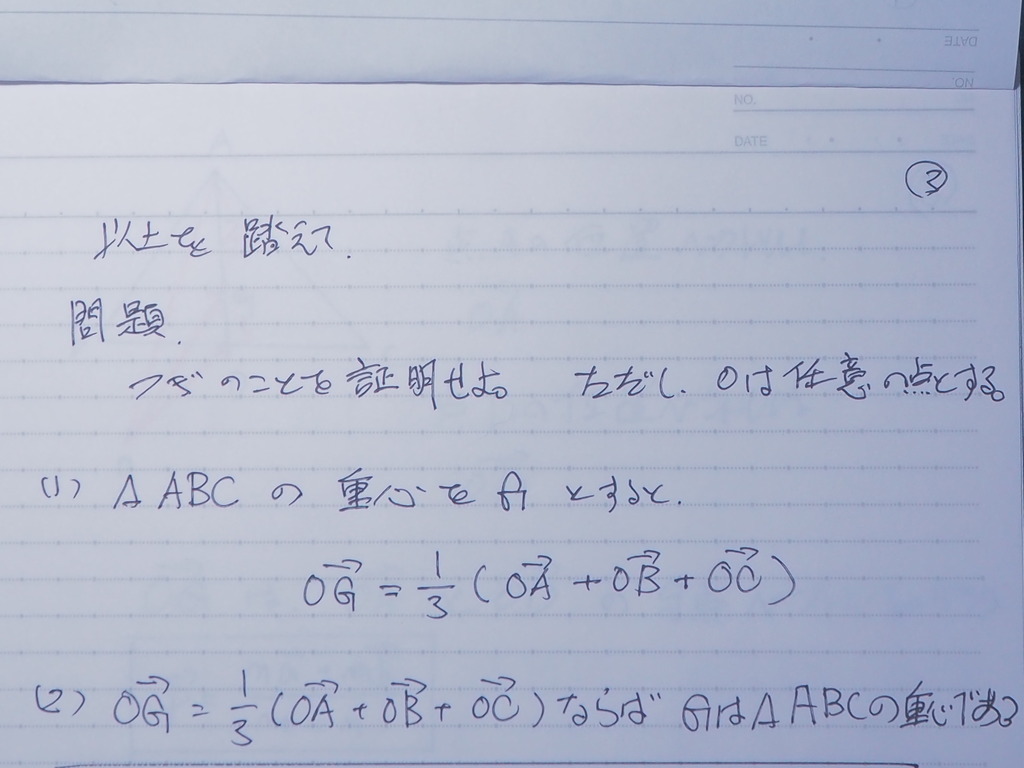 DATE
NO.
NO.
DATE
③
以上を踏えて.
問題.
つぎのことを証明せよ。 ただし、Oは任意の点とする
(1) △ABC の 重心を G とすると.
OG→ = 1/3 (OA→ + OB→ + OC→)
(2) OG→ = 1/3 (OA→ + OB→ + OC→) ならば Gは△ABCの重心である